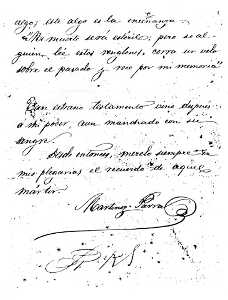 algo, este algo es la enseñanza.
"Mi muerte será estéril; pero si al-
guien lee estos renglones, corra un velo
sobre el pasado y ore por mi memoria"
Este extraño testamento vino después
á mi poder, aun manchado con su
sangre.
Desde entonces, mezclo siempre en
mis plegarias el recuerdo de aquel
mártir.
Martinez Parra